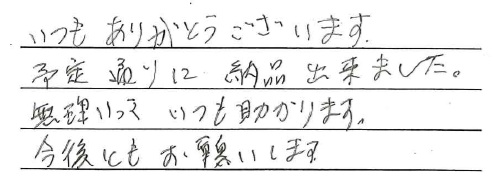 いつもありがとうございます.
予定通りに納品出来ました。
無理いっていつも助かります。
今後ともお願いします